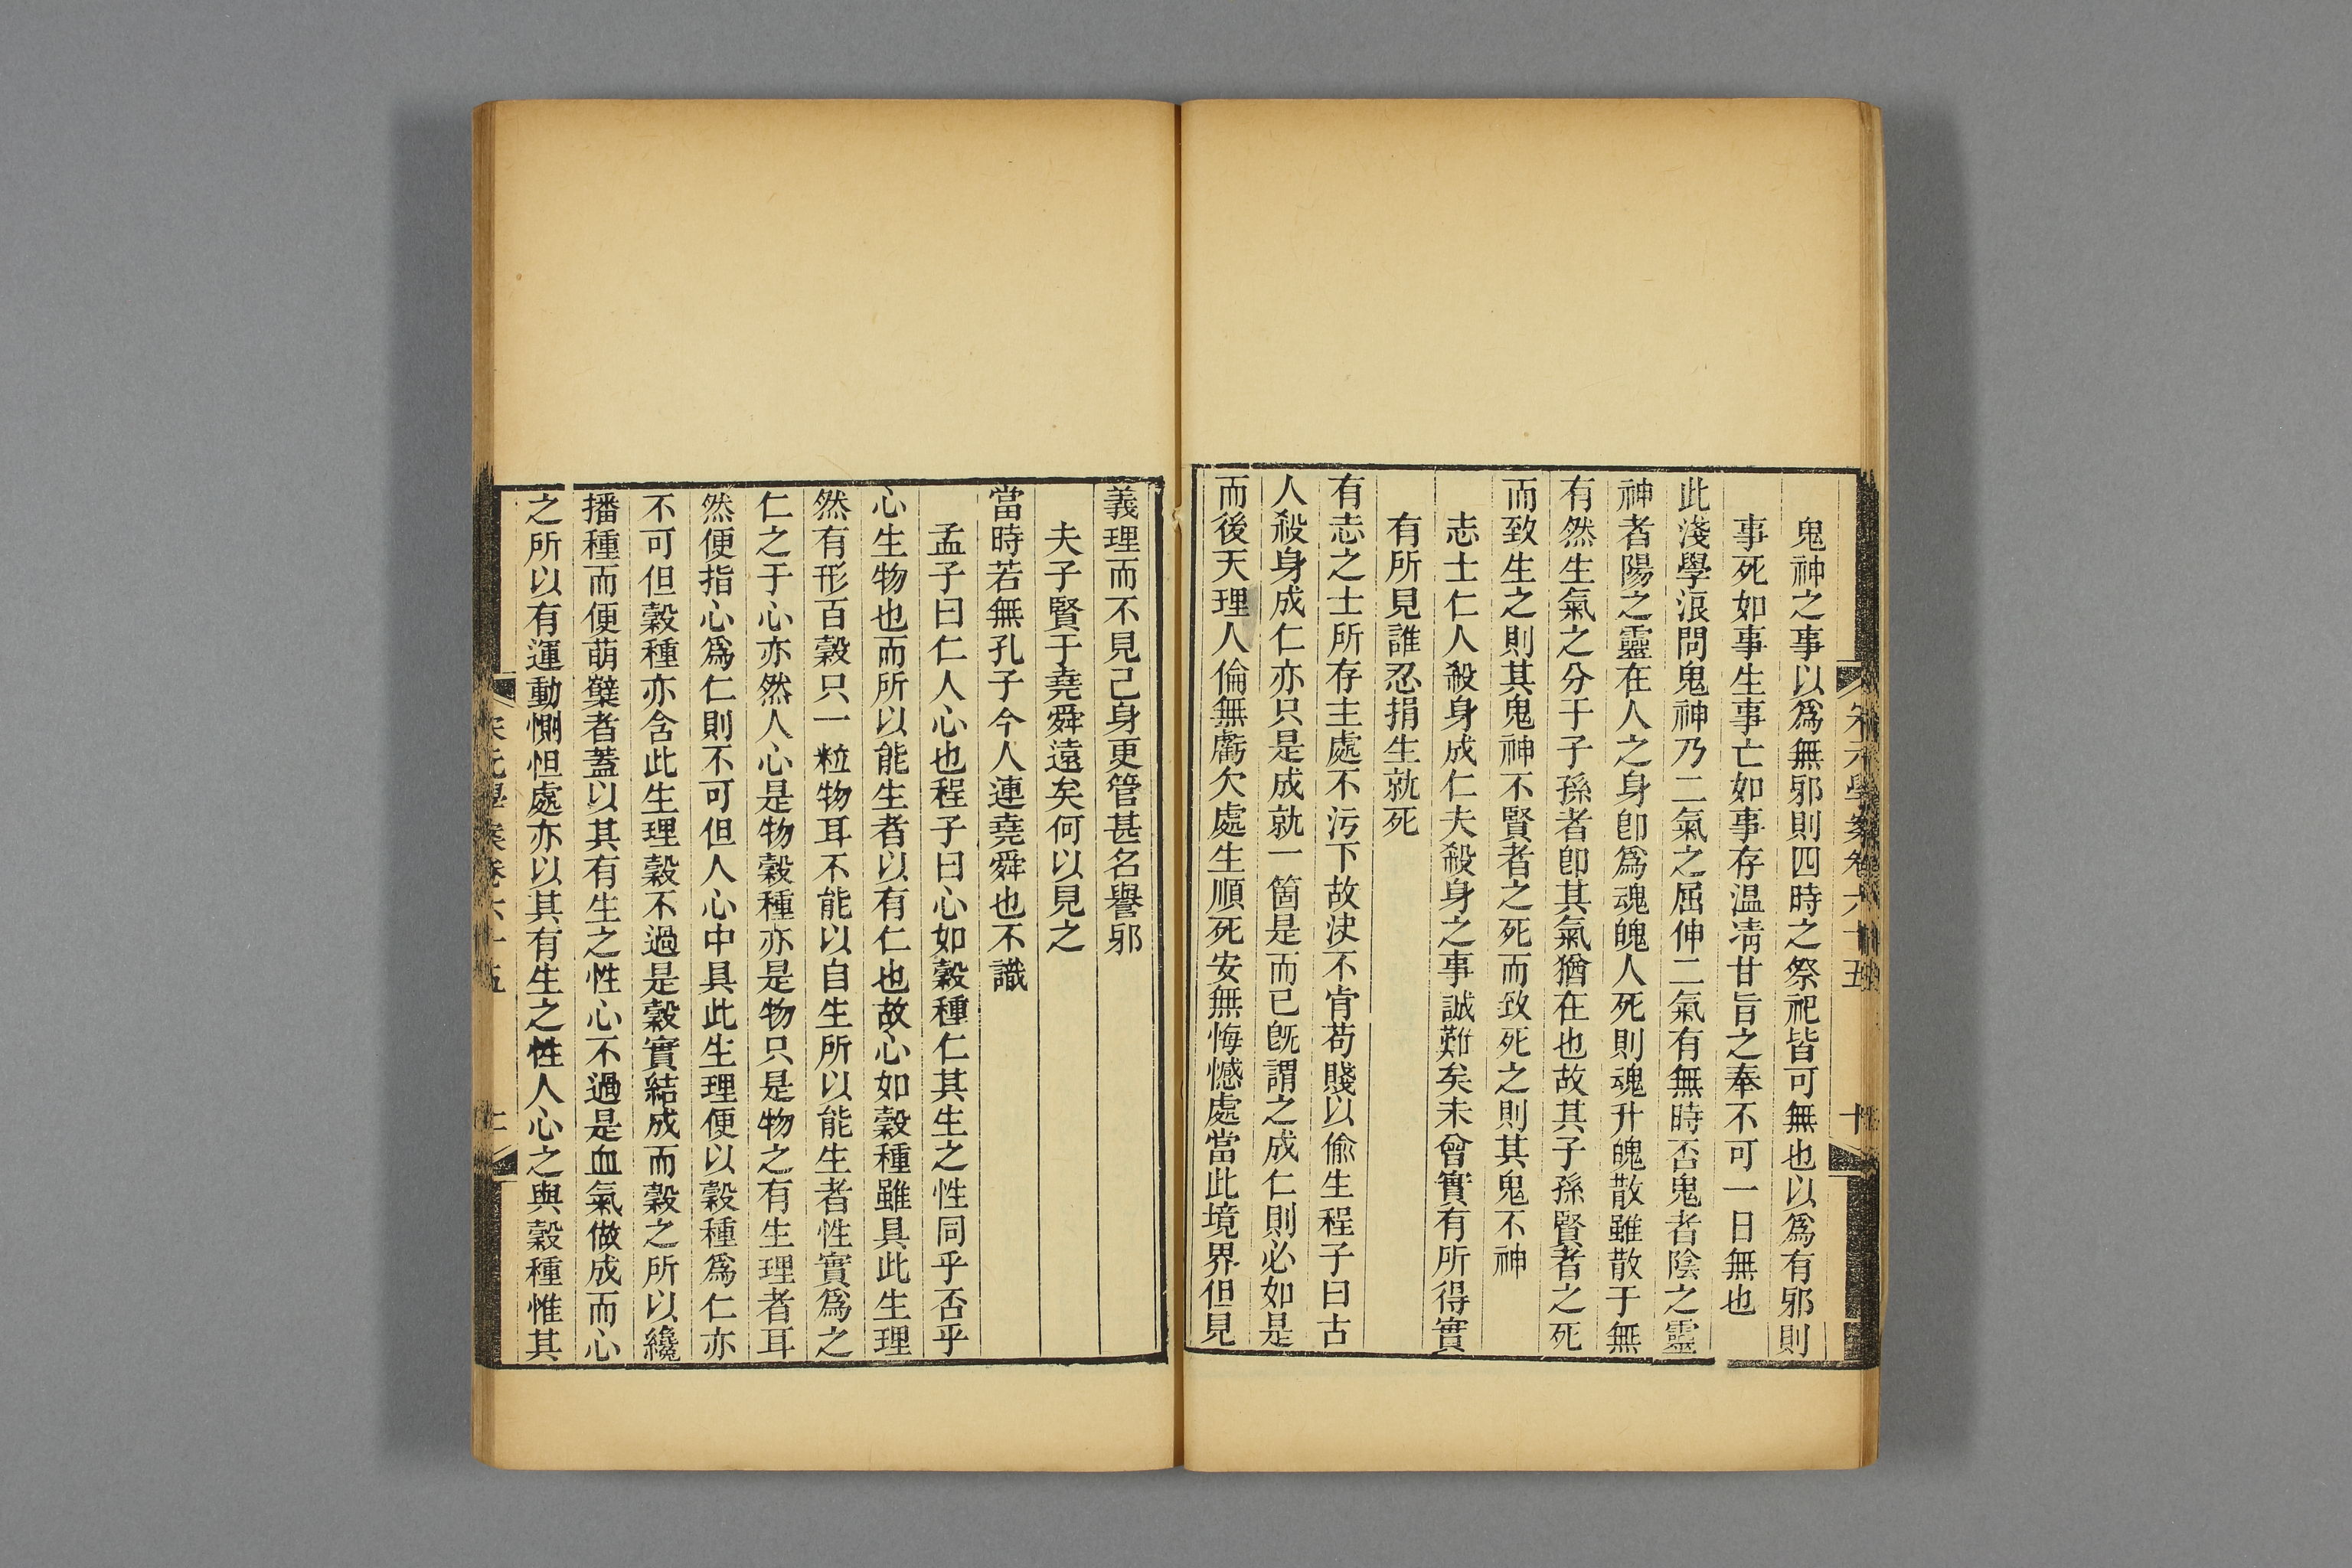 宋元學案卷六十五　十
鬼神之事以爲無邪則四時之祭祀皆可無也以爲有邪則
事死如事生事亡如事存温凊甘旨之奉不可一日無也
此淺學浪問鬼神乃二氣之屈伸二氣有無時否鬼者陰之靈
神者陽之靈在人之身卽爲魂魄人死則魂升魄散雖散于無
有然生氣之分于子孫者卽其氣猶在也故其子孫賢者之死
而致生之則其鬼神不賢者之死而致死之則其鬼不神
志士仁人殺身成仁夫殺身之事誠難矣未曾實有所得實
有所見誰忍捐生就死
有志之士所存主處不污下故决不肯苟賤以偷生程子曰古
人殺身成仁亦只是成就一箇是而已旣謂之成仁則必如是
而後天理人倫無虧欠處生順死安無悔憾處當此境界但見
義理而不見己身更管甚名譽邪
夫子賢于堯舜遠矣何以見之
當時若無孔子今人連堯舜也不識
孟子曰仁人心也程子曰心如穀種仁其生之性同乎否乎
心生物也而所以能生者以有仁也故心如穀種雖具此生理
然有形百穀只一粒物耳不能以自生所以能生者性實爲之
仁之于心亦然人心是物穀種亦是物只是物之有生理者耳
然便指心爲仁則不可但人心中具此生理便以穀種爲仁亦
不可但穀種亦含此生理穀不過是穀實結成而穀之所以纔
播種而便萌櫱者蓋以其有生之性心不過是血氣做成而心
之所以有運動惻怛處亦以其有生之性人心之與穀種惟其
宋元學案卷六十五